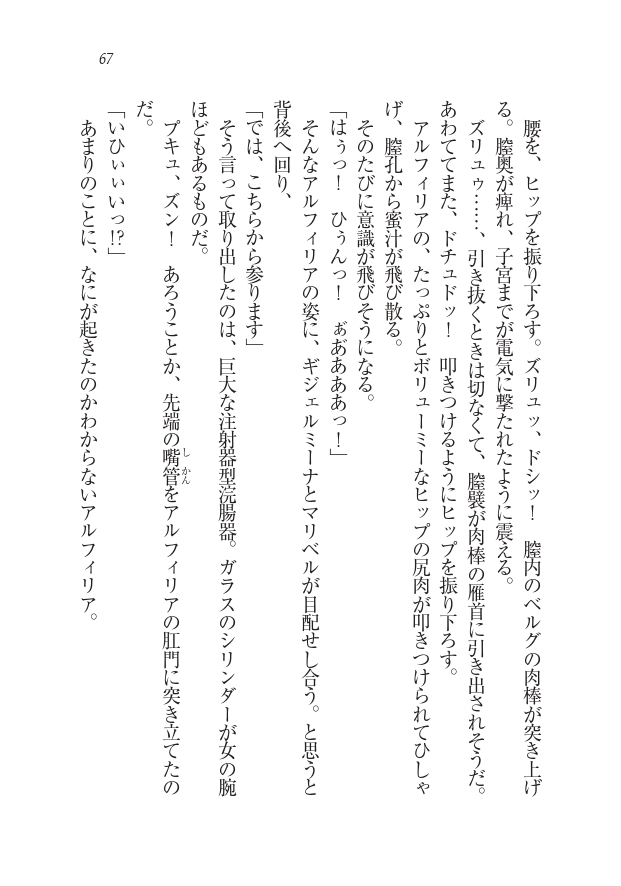 67
腰を、ヒップを振り下ろす。ズリュッ、ドシッ！　膣内のベルグの肉棒が突き上げ
る。膣奥が痺れ、子宮までが電気に撃たれたように震える。
ズリュゥ……、引き抜くときは切なくて、膣襞が肉棒の雁首に引き出されそうだ。
あわててまた、ドチュドッ！　叩きつけるようにヒップを振り下ろす。
アルフィリアの、たっぷりとボリューミーなヒップの尻肉が叩きつけられてひしゃ
げ、膣孔から蜜汁が飛び散る。
そのたびに意識が飛びそうになる。
「はぅっ！　ひぅんっ！　ぁあ゙ああぁっ！」
そんなアルフィリアの姿に、ギジェルミーナとマリベルが目配せし合う。と思うと
背後へ回り、
「では、こちらから参ります」
そう言って取り出したのは、巨大な注射器型浣腸器。ガラスのシリンダーが女の腕
ほどもあるものだ。
プキュ、ズン！　あろうことか、先端の嘴管しかんをアルフィリアの肛門に突き立てたの
だ。
「いひぃぃぃっ!?」
あまりのことに、なにが起きたのかわからないアルフィリア。